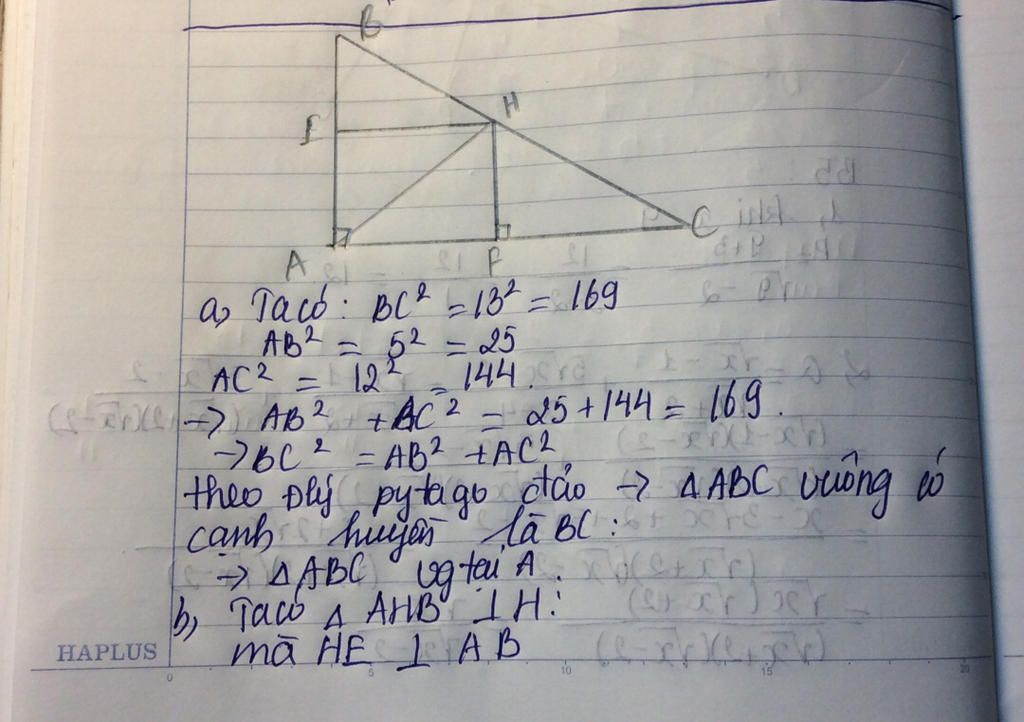 B
H
E
C
A
F
a, Ta có: BC² = 13² = 169
AB² = 5² = 25
AC² = 12² = 144.
→ AB² + AC² = 25 + 144 = 169.
→ BC² = AB² + AC²
theo đlý pytago đảo → △ABC vuông có
cạnh huyền là BC:
→ △ABC vg tại A.
b, Ta có △AHB ⊥ H:
mà HE ⊥ AB
HAPLUS
0 5 10 15 20